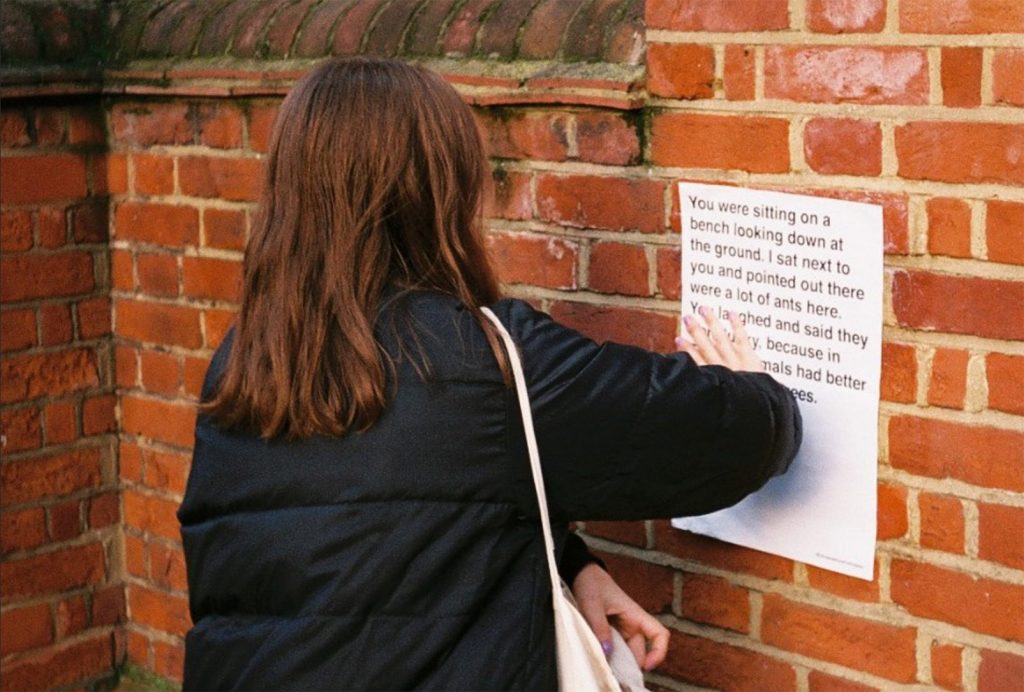 You were sitting on a
bench looking down at
the ground. I sat next to
you and pointed out there
were a lot of ants here.
You laughed and said they
because in
had better